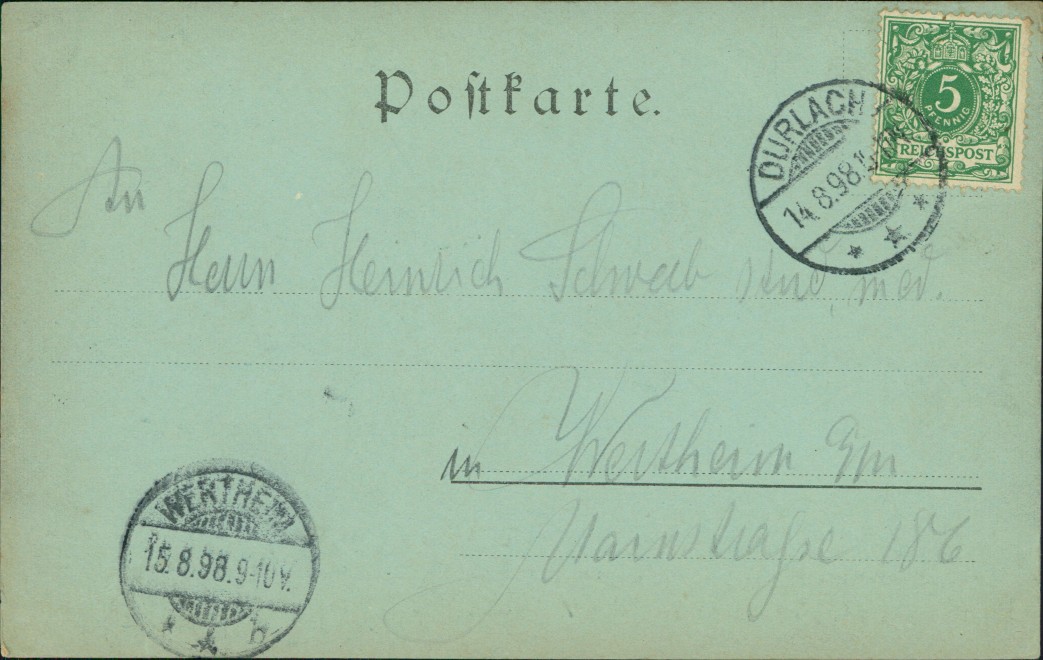 Postkarte.
5
PFENNIG
REICHSPOST
DURLACH
14.8.98.
An
Herrn Heinrich Schwab stud. med.
in Wertheim a/m
Mainstraße 186
WERTHEIM
15.8.98.9-10V.
b